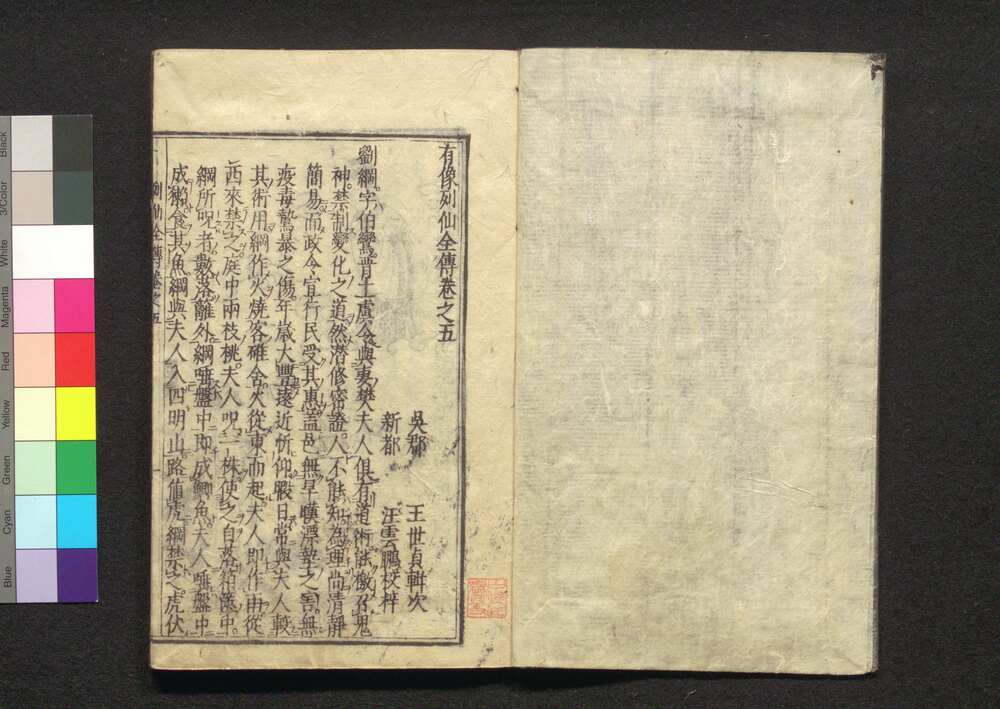 有像列仙全傳卷之五
吳郡 王世貞輯次
新都 汪雲鵬校梓
劉綱字伯鸞晉上虞令與妻樊夫人俱有道術能檄召鬼
神禁制變化之道然潛修密證人不能知為理尚清靜
簡易而政令宣行民受其惠蓋邑無旱暵漂墊之害無
疫毒鷙暴之傷年歲大豐遠近忻仰暇日常與夫人較
其術用綱作火燒客碓舍火從東而起夫人即作雨從
西來禁之庭中兩枝桃夫人呪一株使之自落箱篋中
綱所呪者數落籬外綱唾盤中即成鯽魚夫人唾盤中
成獺食其魚綱與夫人入四明山路值虎綱禁之虎伏
列仙全傳卷之五
Black
3/Color
White
Magenta
Red
Yellow
Green
Cyan
Blue